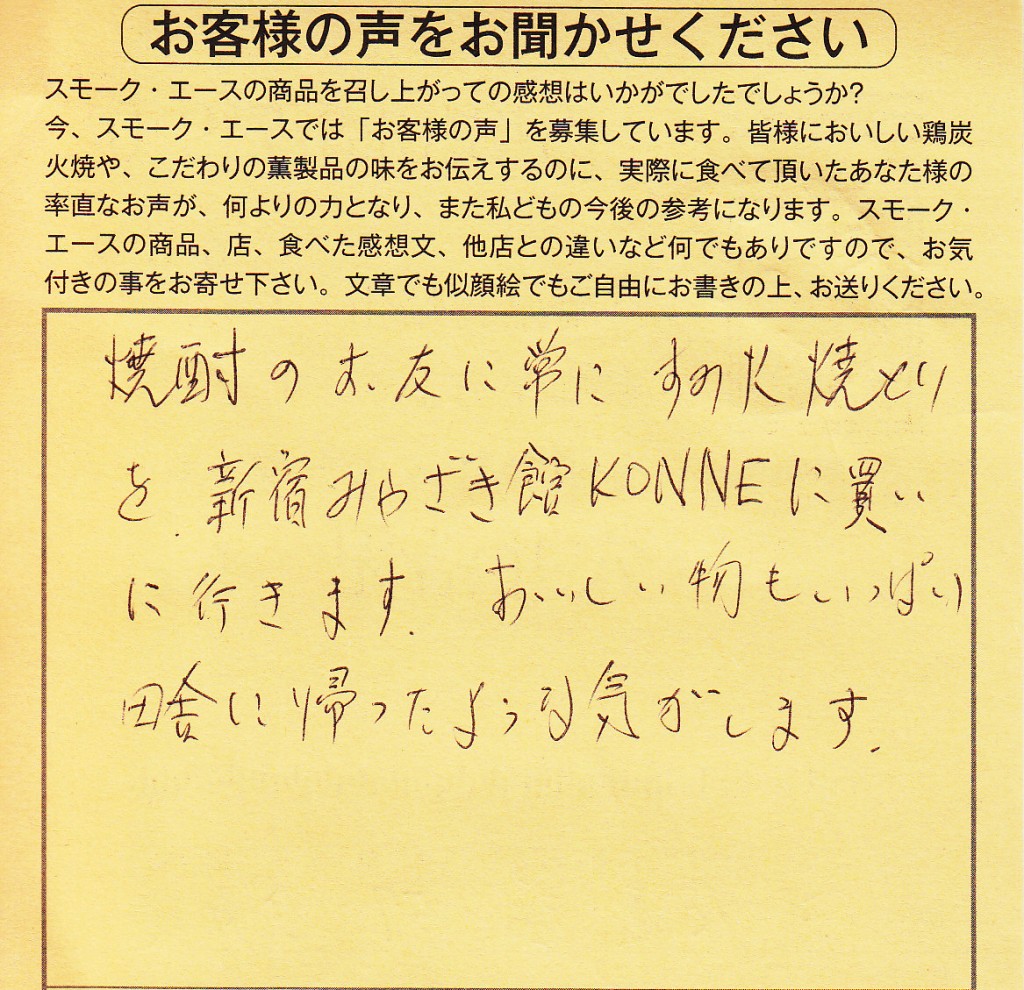 お客様の声をお聞かせください
スモーク・エースの商品を召し上がっての感想はいかがでしたでしょうか?
今、スモーク・エースでは「お客様の声」を募集しています。皆様においしい鶏炭
火焼や、こだわりの薫製品の味をお伝えするのに、実際に食べて頂いたあなた様の
率直なお声が、何よりの力となり、また私どもの今後の参考になります。スモーク・
エースの商品、店、食べた感想文、他店との違いなど何でもありですので、お気
付きの事をお寄せ下さい。文章でも似顔絵でもご自由にお書きの上、お送りください。
焼酎のお友に常に すみ火焼とり
を 新宿みやざき館KONNEに買い
に行きます. おいしい物もいっぱい
田舎に帰ったような気がします.